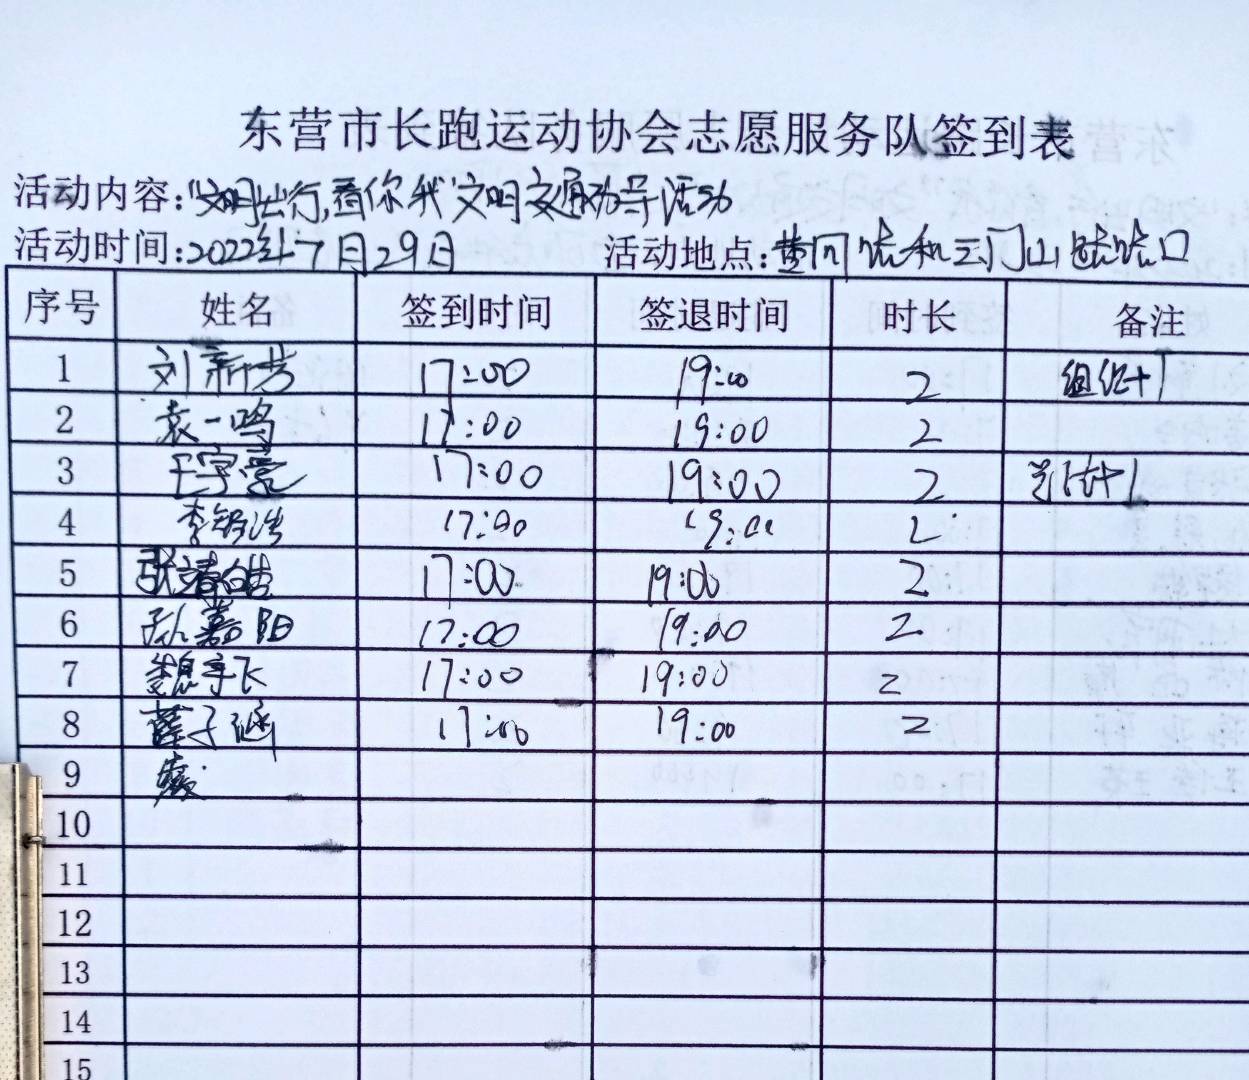 东营市长跑运动协会志愿服务队签到表
活动内容:"文明出行,看你我"文明交通劝导活动
活动时间:2022年7月29日 活动地点:黄河路和云门山路路口
序号 姓名 签到时间 签退时间 时长 备注
1 刘新芳 17:00 19:00 2
2 袁一鸣 17:00 19:00 2
3 王宇亮 17:00 19:00 2
4 17:00 19:00 2
5 张靖皓 17:00 19:00 2
6 孙嘉阳 17:00 19:00 2
7 魏宇飞 17:00 19:00 2
8 薛子涵 17:00 19:00 2
9
10
11
12
13
14
15